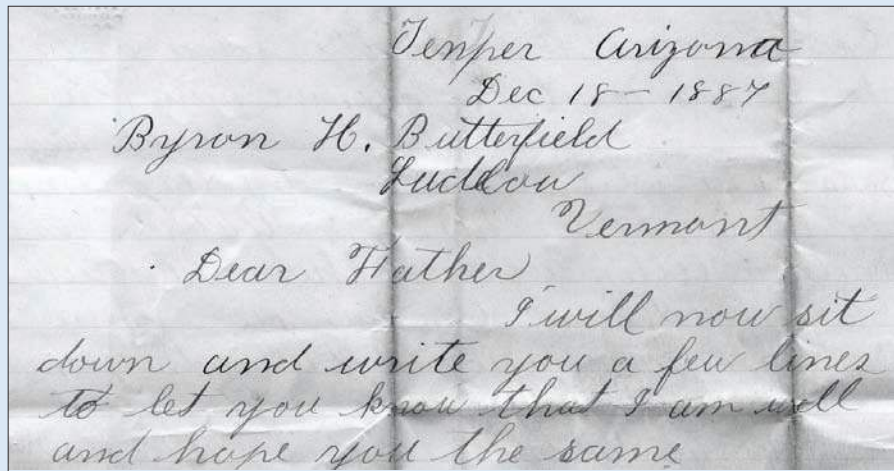 Tenper Arizona
Dec 18 - 1887
Byron H. Butterfield
Ludlow
Vermont
Dear Father
I will now sit
down and write you a few lines
to let you know that I am well
and hope you the same